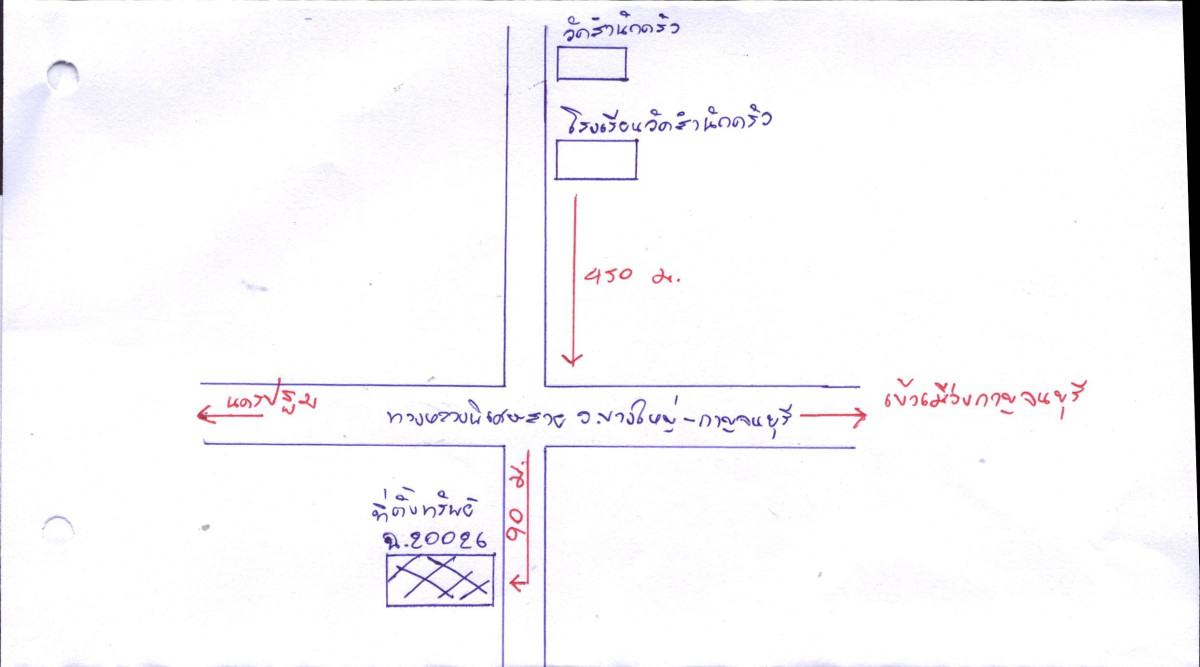 วัดสำนักคร้อ
โรงเรียนวัดสำนักคร้อ
450 ม.
นครปฐม
ทางหลวงพิเศษสาย อ.บางใหญ่-กาญจนบุรี
เข้าเมืองกาญจนบุรี
90 ม.
ที่ตั้งทรัพย์
ฉ.20026